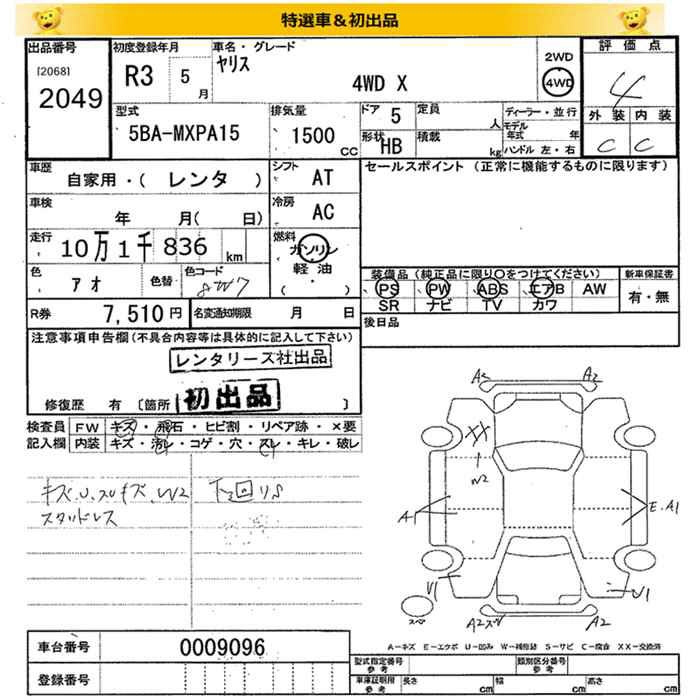 特選車＆初出品
出品番号
[2068]
2049
初度登録年月
R3 5月
車名・グレード
ヤリス
4WD X
2WD
4WD
評価点
4
外装 内装
C C
型式
5BA-MXPA15
排気量
1500 CC
ドア 5
定員 人
形状 HB
積載 kg
ディーラー・並行
モデル年式 年
ハンドル 左・右
車歴
自家用・( レンタ )
シフト AT
セールスポイント (正常に機能するものに限ります)
車検
年 月( 日)
冷房 AC
走行
10万1千836 km
燃料
ガソリン
軽油
( ・ )
色
アオ
色替
色コード
8W7
装備品 (純正品に限り〇をつけてください)
PS PW ABS エアB AW
SR ナビ TV カワ
新車保証書
有・無
R券
7,510円
名変通知期限 月 日
後日品
注意事項申告欄 (不具合内容等は具体的に記入して下さい)
レンタリース社出品
初出品
修復歴 有 [箇所 ]
検査員記入欄
FW キズ・飛石・ヒビ割・リペア跡・×要
内装 キズ・汚レ・コゲ・穴・スレ・キレ・破レ
キズ.U.スリキズ.W2
スタッドレス
下回りS
A2 A2
XX
W2
A1
E.A1
U1
U1
A2スリ A2
スペア
A－キズ E－エクボ U－凹み W－補修跡 S－サビ C－腐食 XX－交換済
車台番号
0009096
登録番号
型式指定番号 参考
類別区分番号 参考
車庫証明用 参考
長さ cm
幅 cm
高さ cm